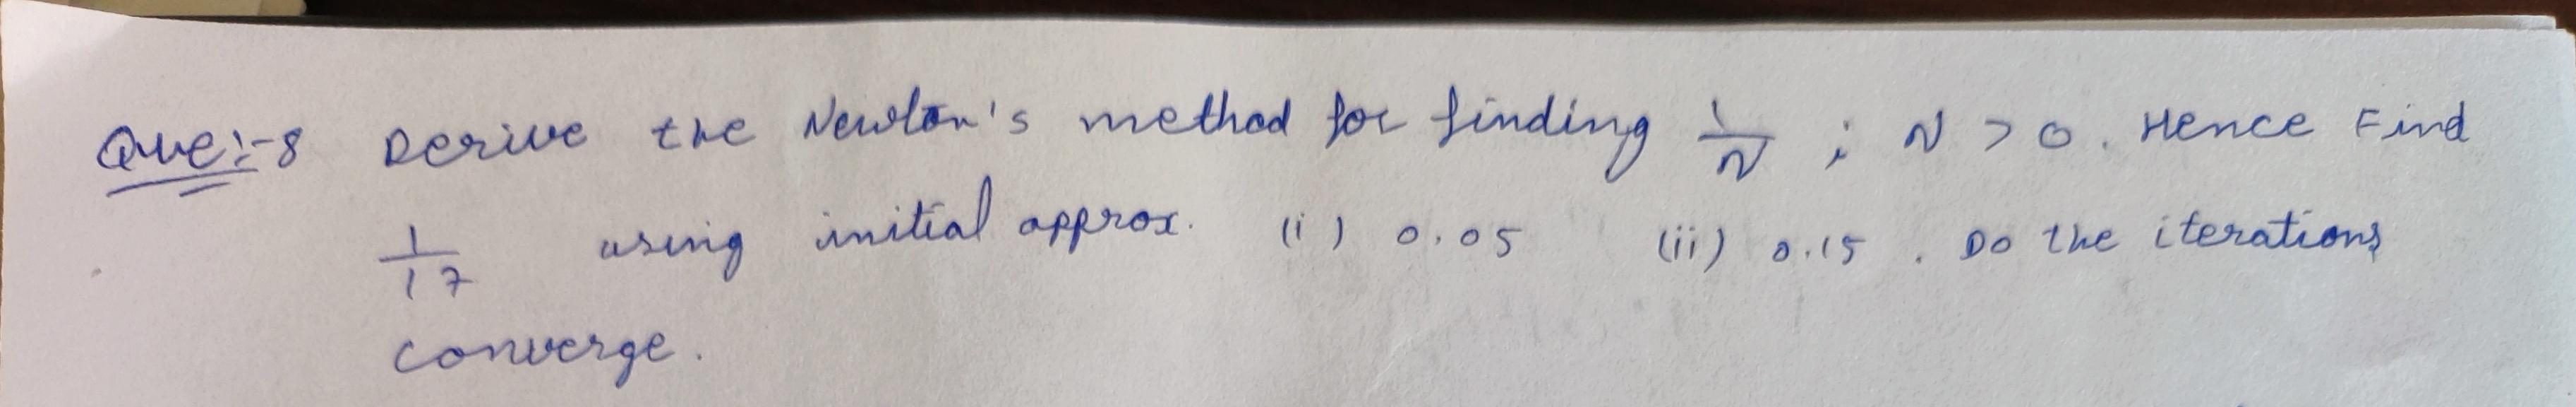 Que:-8 Derive the Newton's method for finding 1/N ; N > 0. Hence Find
1/17 using initial approx. (i) 0.05 (ii) 0.15. Do the iterations
converge.